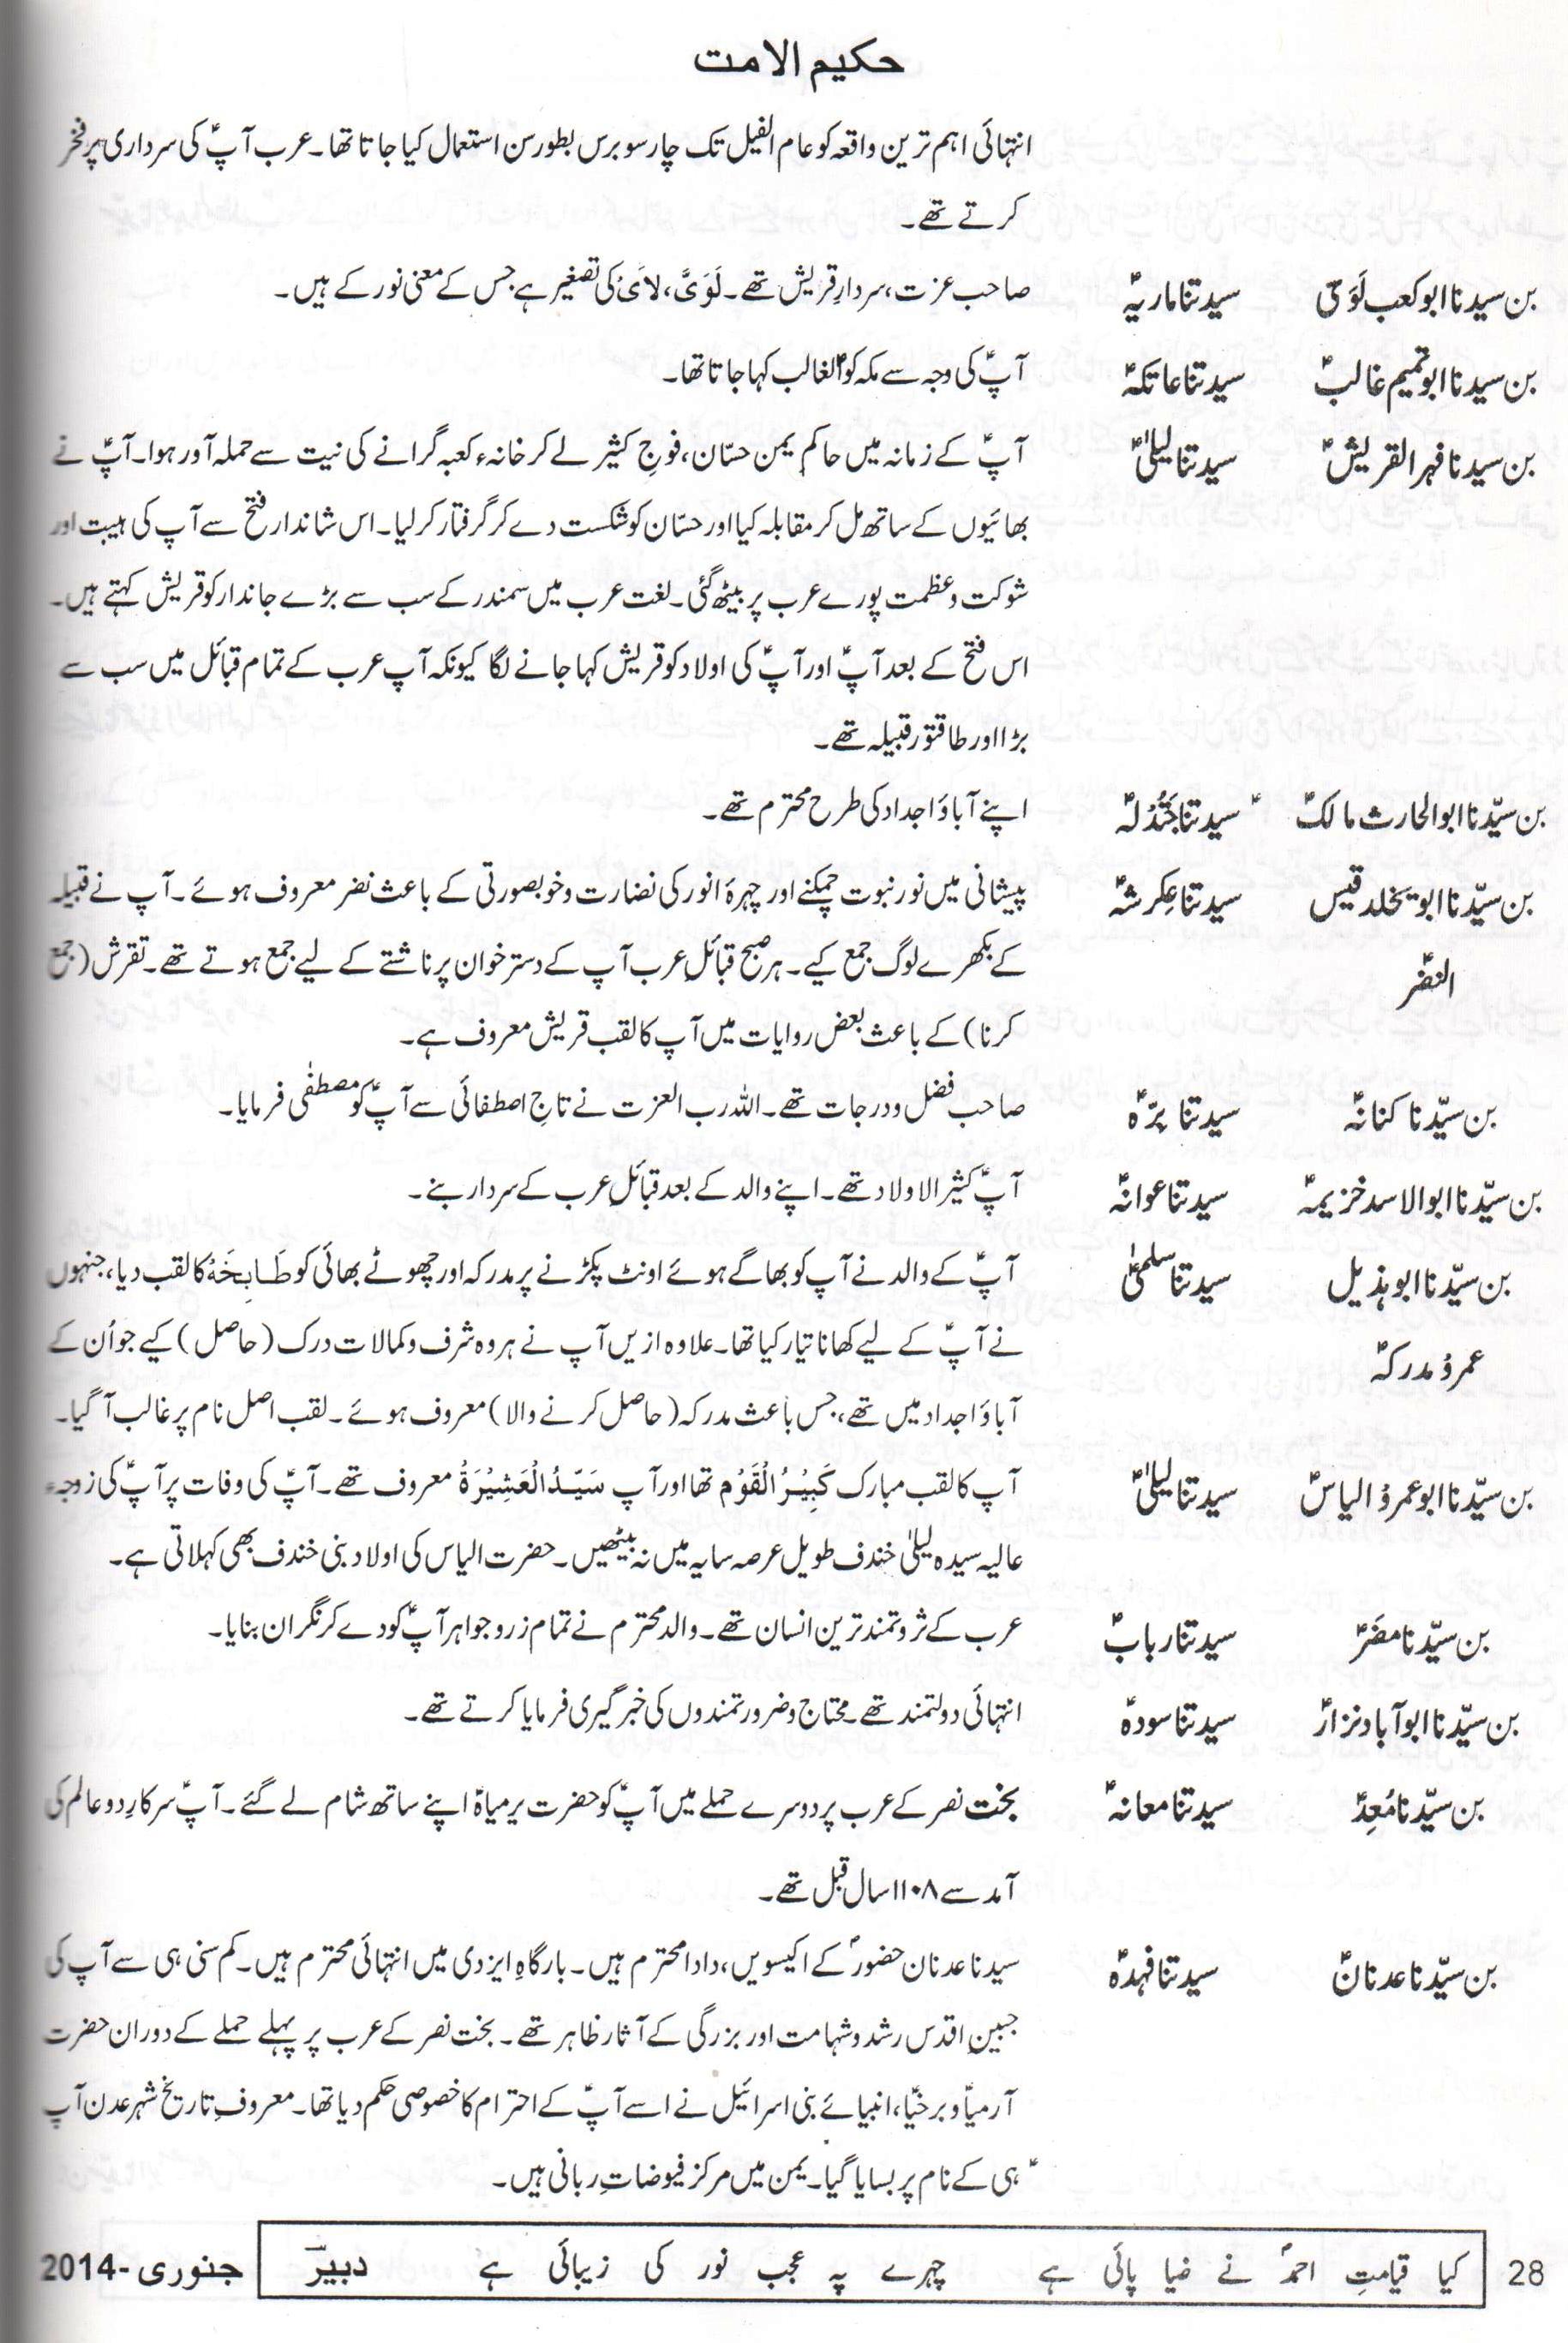 حکیم الامت
انتہائی اہم ترین واقعہ کو عام الفیل تک چار سو برس بطور سن استعمال کیا جاتا تھا۔ عرب آپؑ کی سرداری پر فخر
کرتے تھے۔
بن سیدنا ابو کعب لَوَیؑ سیدتنا ماریہؑ صاحب عزت، سردارِ قریش تھے۔ لَوَیَّ، لَایُ کی تصغیر ہے جس کے معنی نور کے ہیں۔
بن سیدنا ابو تمیم غالبؑ سیدتنا عاتکہؑ آپؑ کی وجہ سے مکہ کو ام الغالب کہا جاتا تھا۔
بن سیدنا فہر القریشؑ سیدتنا لیلیٰؑ آپؑ کے زمانہ میں حاکمِ یمن حسّان، فوجِ کثیر لے کر خانہء کعبہ گرانے کی نیت سے حملہ آور ہوا۔ آپؑ نے
بھائیوں کے ساتھ مل کر مقابلہ کیا اور حسّان کو شکست دے کر گرفتار کر لیا۔ اس شاندار فتح سے آپ کی ہیبت اور
شوکت و عظمت پورے عرب پر بیٹھ گئی۔ لغت عرب میں سمندر کے سب سے بڑے جاندار کو قریش کہتے ہیں۔
اس فتح کے بعد آپؑ اور آپؑ کی اولاد کو قریش کہا جانے لگا کیونکہ آپ عرب کے تمام قبائل میں سب سے
بڑا اور طاقتور قبیلہ تھے۔
بن سیّدنا ابو الحارث مالکؑ سیدتنا جَنْدَلہؑ اپنے آباؤ اجداد کی طرح محترم تھے۔
بن سیّدنا ابو یخلد قیس سیدتنا عِکرشہؑ پیشانی میں نور نبوت چمکنے اور چہرۂ انور کی نضارت و خوبصورتی کے باعث نضر معروف ہوئے۔ آپ نے قبیلہ
النضرؑ کے بکھرے لوگ جمع کیے۔ ہر صبح قبائلِ عرب آپ کے دستر خوان پر ناشتے کے لیے جمع ہوتے تھے۔ تقرش (جمع
کرنا) کے باعث بعض روایات میں آپ کا لقب قریش معروف ہے۔
بن سیّدنا کنانہؑ سیدتنا برّہؑ صاحب فضل و درجات تھے۔ اللہ رب العزت نے تاجِ اصطفائی سے آپؑ کو مصطفٰی فرمایا۔
بن سیّدنا ابو الاسد خزیمہؑ سیدتنا عوانہؑ آپؑ کثیر الاولاد تھے۔ اپنے والد کے بعد قبائلِ عرب کے سردار بنے۔
بن سیّدنا ابو ہذیل سیدتنا سلمیٰؑ آپؑ کے والد نے آپ کو بھاگے ہوئے اونٹ پکڑنے پر مدرکہ اور چھوٹے بھائی کو طَابِخَہْ کا لقب دیا، جنہوں
عمروُ مدرکہؑ نے آپؑ کے لیے کھانا تیار کیا تھا۔ علاوہ ازیں آپ نے ہر وہ شرف و کمالات درک (حاصل) کیے جو اُن کے
آباؤ اجداد میں تھے، جس باعث مدرکہ (حاصل کرنے والا) معروف ہوئے۔ لقب اصل نام پر غالب آ گیا۔
بن سیّدنا ابو عمروُ الیاسؑ سیدتنا لیلیٰؑ آپ کا لقب مبارک کَبِیْرُ الْقَوْم تھا اور آپ سَیّدُ الْعَشِیْرَۃُ معروف تھے۔ آپؑ کی وفات پر آپؑ کی زوجہء
عالیہ سیدہ لیلیٰ خندف طویل عرصہ سایہ میں نہ بیٹھیں۔ حضرت الیاس کی اولاد بنی خندف بھی کہلاتی ہے۔
بن سیّدنا مضَرؑ سیدتنا ربابؑ عرب کے ثروتمند ترین انسان تھے۔ والد محترم نے تمام زر و جواہر آپؑ کو دے کر نگران بنایا۔
بن سیّدنا ابو آباد نزارؑ سیدتنا سودہؑ انتہائی دولتمند تھے۔ محتاج و ضرورتمندوں کی خبر گیری فرمایا کرتے تھے۔
بن سیّدنا مُعِدؑ سیدتنا معانہؑ بخت نصر کے عرب پر دوسرے حملے میں آپؑ کو حضرت یرمیاہؑ اپنے ساتھ شام لے گئے۔ آپؑ سرکارِ دو عالم کی
آمد سے ۱۱۰۸ سال قبل تھے۔
بن سیّدنا عدنانؑ سیدتنا فہدہؑ سیدنا عدنان حضورؐ کے اکیسویں، دادا محترم ہیں۔ بارگاہِ ایزدی میں انتہائی محترم ہیں۔ کم سنی ہی سے آپ کی
جبینِ اقدس رشد و شہامت اور بزرگی کے آثار ظاہر تھے۔ بخت نصر کے عرب پر پہلے حملے کے دوران حضرت
آرمیاؑ و برخیاؑ، انبیائے بنی اسرائیل نے اسے آپؑ کے احترام کا خصوصی حکم دیا تھا۔ معروفِ تاریخ شہر عدن آپ
ہی کے نام پر بسایا گیا۔ یمن میں مرکز فیوضاتِ ربانی ہیں۔
28 کیا قیامتِ احمدؐ نے ضیا پائی ہے چہرے پہ عجب نور کی زیبائی ہے دبیرؔ جنوری -2014